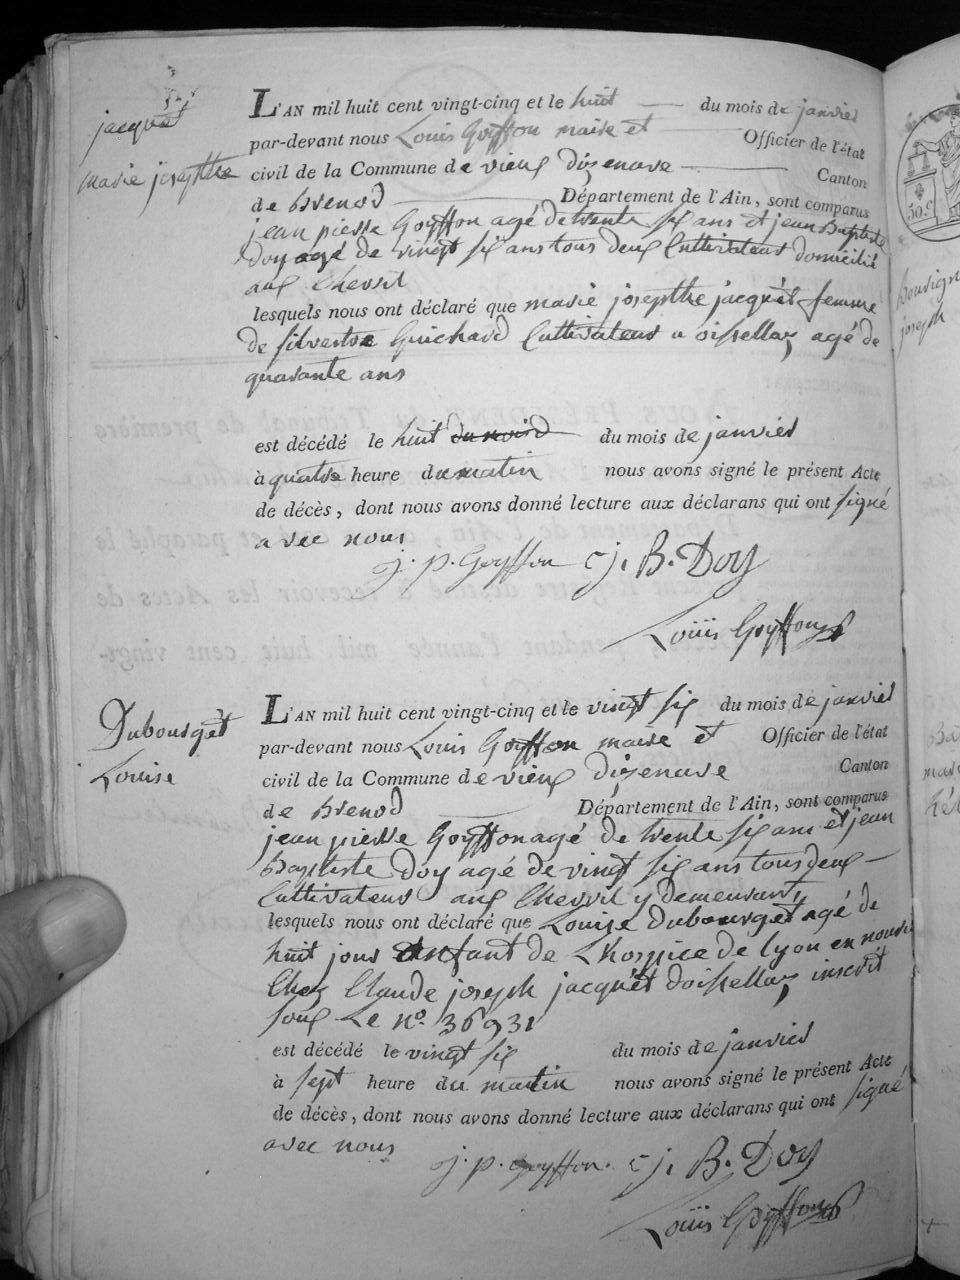 jacquet
marie josepthe
L'AN mil huit cent vingt-cinq et le huit du mois de janvier
par-devant nous Louis Goyffon maire et Officier de l'état
civil de la Commune de vieux dizenave Canton
de Brenod Département de l'Ain, sont comparus
jean pierre Goyffon agé de trente six ans et jean Baptiste
Doy agé de vingt six ans tous deux Cultivateurs domicilié
aux Chevril
lesquels nous ont déclaré que marie josepthe jacquet femme
de silvestre Guichard Cultivateur a oissellaz agé de
quarante ans
est décédé le huit du mois de janvier
à quatre heure du matin nous avons signé le présent Acte
de décès, dont nous avons donné lecture aux déclarans qui ont signé
avec nous
j. p. Goyffon j. B. Doy
Louis Goyffon
Dubourget
Louise
L'AN mil huit cent vingt-cinq et le vingt six du mois de janvier
par-devant nous Louis Goyffon maire et Officier de l'état
civil de la Commune de vieux dizenave Canton
de Brenod Département de l'Ain, sont comparus
jean pierre Goyffon agé de trente six ans et jean
Baptiste Doy agé de vingt six ans tous deux
Cultivateurs aux Chevril y demeurant
lesquels nous ont déclaré que Louise Dubourget agé de
huit jours enfant de Lhospice de lyon en nourri
Chez Claude joseph jacquet doissellaz inscrit
sous Le n° 36931
est décédé le vingt six du mois de janvier
à sept heure du matin nous avons signé le présent Acte
de décès, dont nous avons donné lecture aux déclarans qui ont signé
avec nous
j. p. Goyffon. j. B. Doy
Louis Goyffon
50 c.
joseph